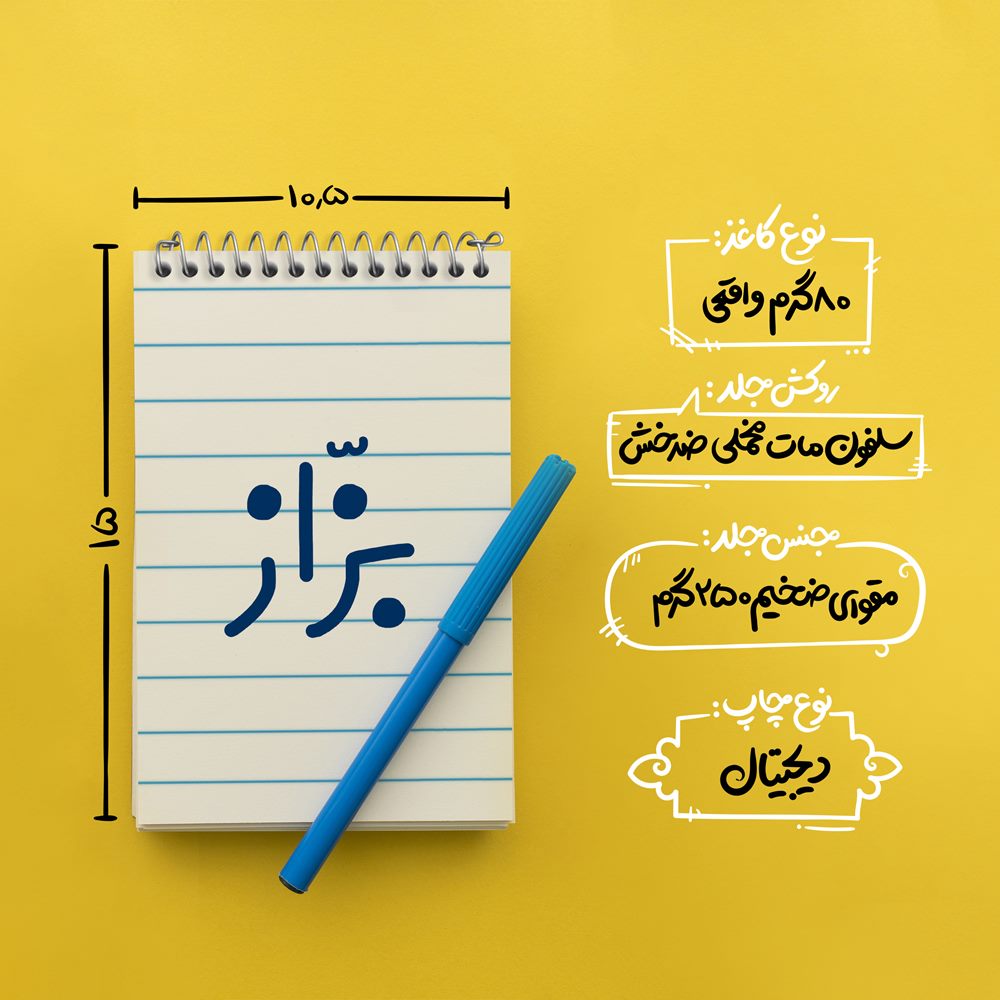 ۱۰,۵
۱۵
بزّاز
نوع کاغذ:
۸۰ گرم واقعی
روکش جلد:
سلفون مات مخملی ضدخش
جنس جلد:
مقوای ضخیم ۲۵۰ گرم
نوع چاپ:
دیجیتال